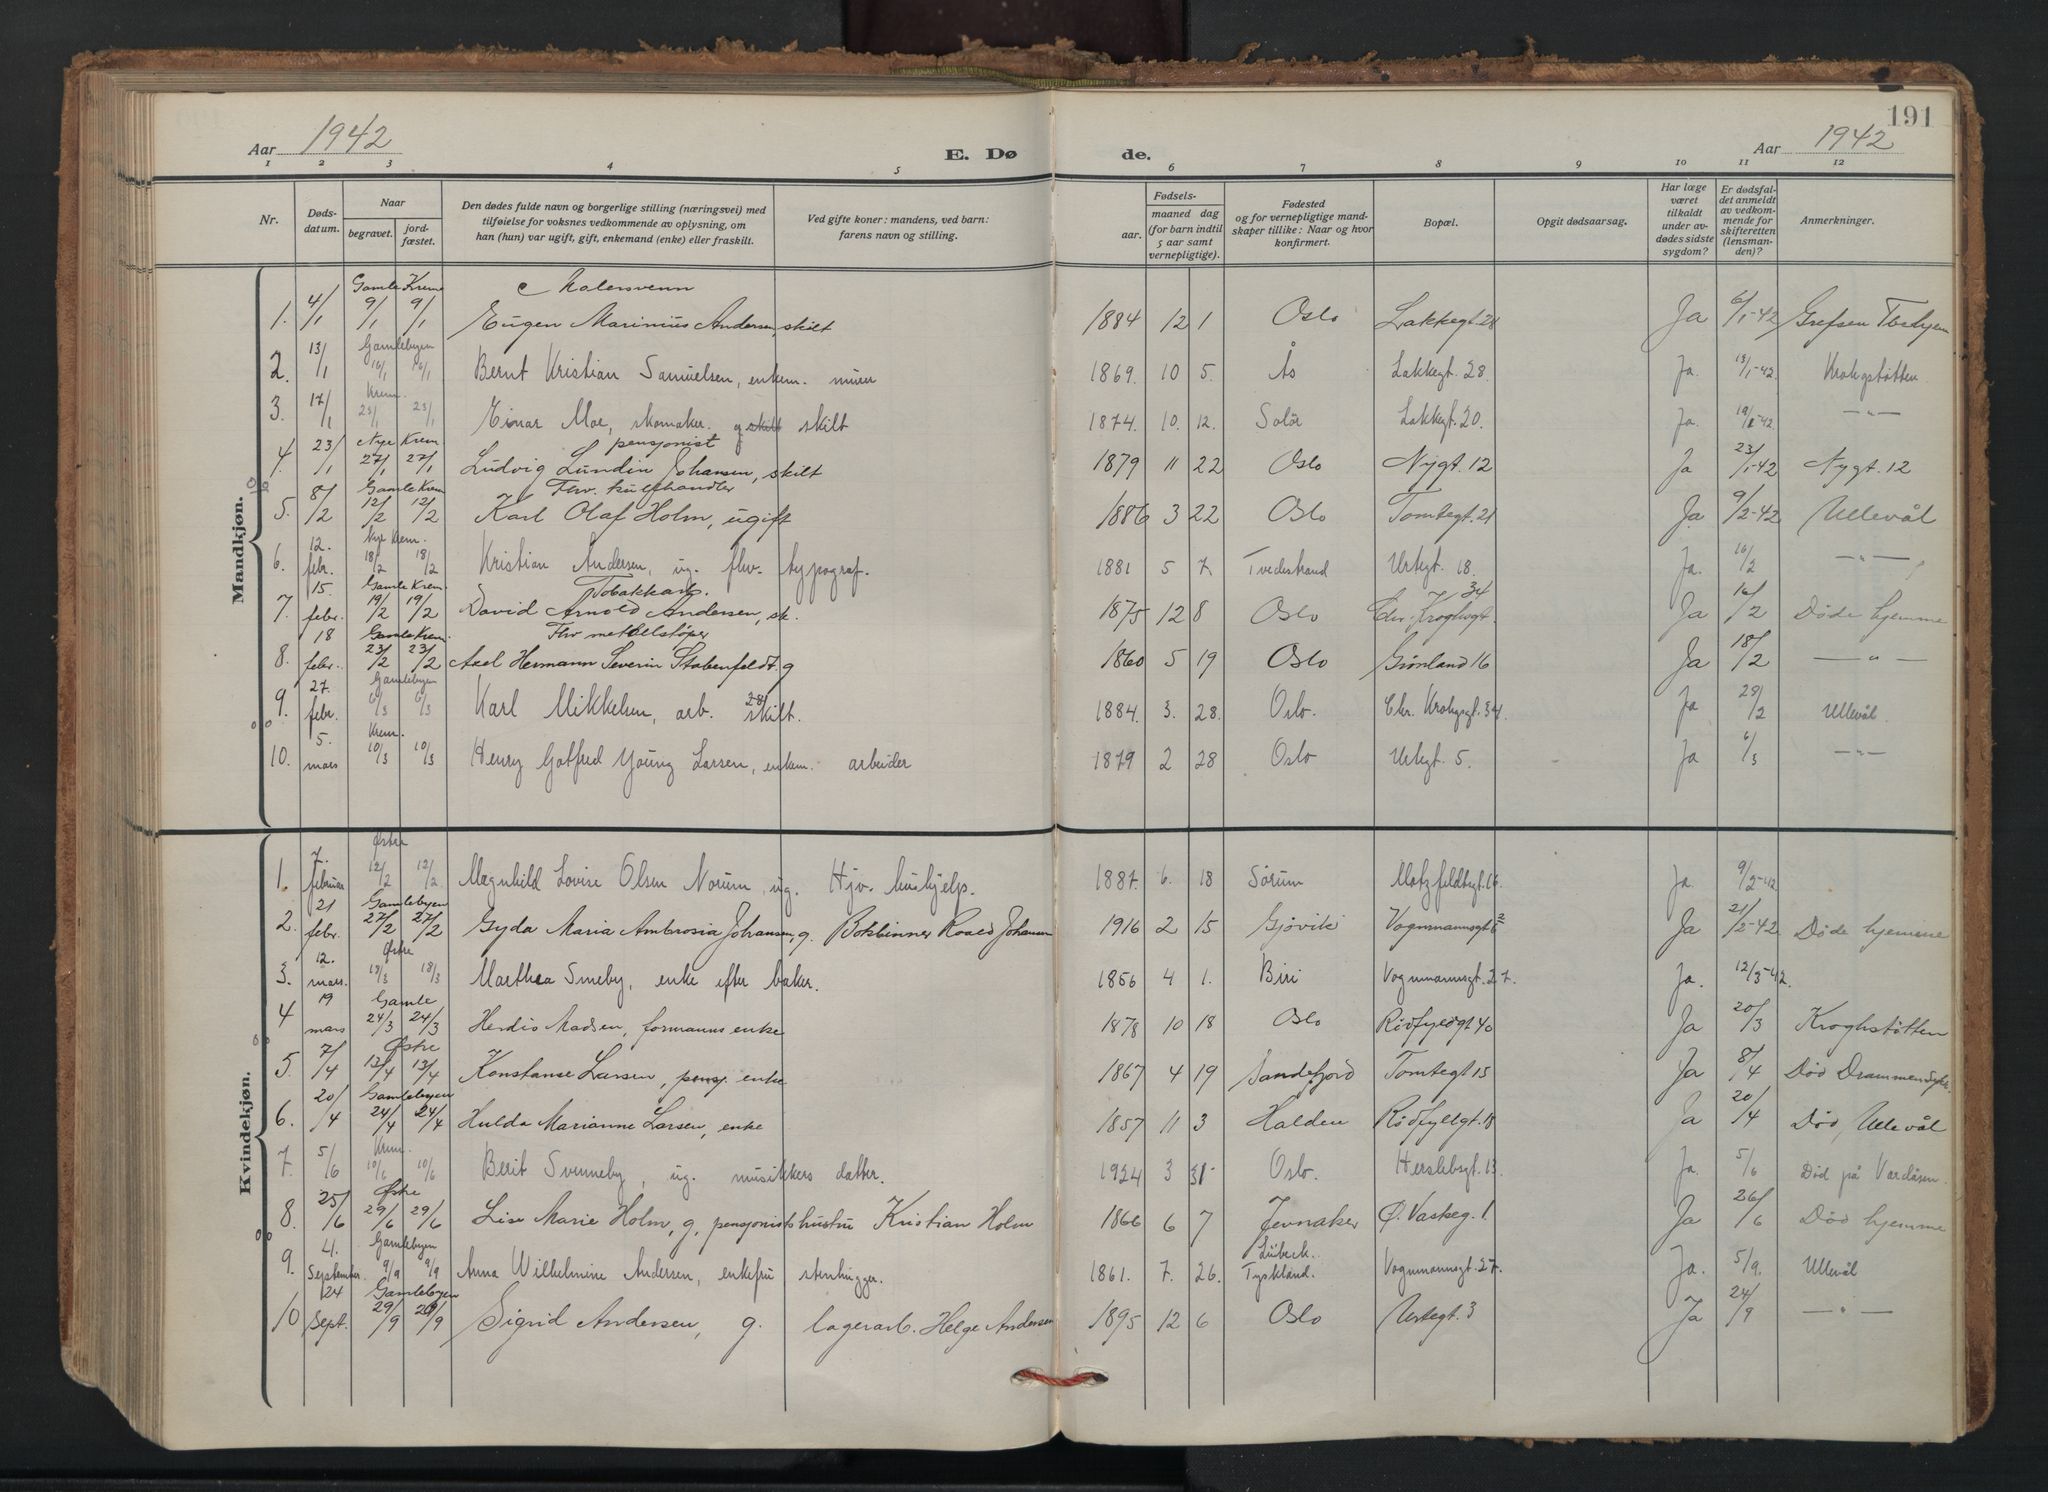 191
Aar 1942 E. Dø de. Aar 1942
1 2 3 4 5 6 7 8 9 10 11 12
Nr. Døds-datum. Naar begravet. jord-fæstet. Den dødes fulde navn og borgerlige stilling (næringsvei) med tilføielse for voksnes vedkommende av oplysning, om han (hun) var ugift, gift, enkemand (enke) eller fraskilt. Ved gifte koner: mandens, ved barn: farens navn og stilling. Fødsels- aar. maaned dag (for barn indtil 5 aar samt vernepligtige). Fødested og for vernepligtige mandskaper tillike: Naar og hvor konfirmert. Bopæl. Opgit dødsaarsag. Har læge været tilkaldt under avdødes sidste sygdom? Er dødsfaldet anmeldt av vedkommende for skifteretten (lensmanden)? Anmerkninger.
Mandkjøn.
Gamle Krem Malersvenn
1. 4/1 9/1 9/1 Eugen Marinius Andersen, skilt 1884 12 1 Oslo Lakkegt. 28 Ja 6/1-42 Grefsen Tbchjem
Gamlebyen
2. 13/1 16/1 16/1 Bernt Kristian Samuelsen, enkem. murer 1869. 10 5. Ås Lakkegt. 28. Ja. 13/1-42. Krohgstøtten
Krem.
3. 17/1 23/1 23/1 Einar Moe, skomaker. g skilt skilt 1874. 10. 12. Solør Lakkegt. 20. Ja. 19/1-42. —"—
Nye Krem pensjonist
4. 23/1 27/1 27/1 Ludvig Lundin Johansen, skilt 1879 11 22 Oslo Nygt. 12 Ja 23/1-42 Nygt. 12
Gamle Krem Fhv. kulshandler
5. 8/2 12/2 12/2 Karl Olaf Holm, ugift 1886 3 22 Oslo Tomtegt. 21 Ja 9/2-42 Ullevål
Nye Krem.
6. 12. febr. 18/2 18/2 Kristian Andersen, ug. fhv. typograf. 1881 5 7. Tvedestrand Urtegt. 18. Ja. 16/2 —"—
Gamle Krem Tobakkarb. 34
7. 15. febr. 19/2 19/2 David Arnold Andersen, sk. 1875 12 8 Oslo Chr. Kroghsgt. Ja 16/2 Døde hjemme
Gamle Krem. Fhv metallstøper
8. 18 febr. 23/2 23/2 Axel Hermann Severin Stobenfeldt, g 1860 5 19 Oslo Grønland 16 Ja 18/2 —"—
Gamlebyen
9. 27. febr. 6/3 6/3 Karl Mikkelsen, arb. skilt. 1884. 3. 28. Oslo. Chr. Krohgsgt. 34. Ja 28/2 Ullevål.
Krem.
10. 5. mars 10/3 10/3 Henry Gotfred Young Larsen, enkem. arbeider 1879 2 28 Oslo Urtegt. 5. Ja 6/3 —"—
Kvindekjøn.
Østre
1. 7. februar 12/2 12/2 Magnhild Lovise Olsen Norum, ug. Hjv. hushjelp. 1887. 6. 18 Sørum Motzfeldtsgt. 16. Ja. 9/2-42
Gamlebyen
2. 21 febr. 27/2 27/2 Gyda Maria Ambrosia Johansen, g. Bokbinner Roald Johansen 1916 2 15 Gjøvik Vognmannsgt. Ja 21/2-42 Døde hjemme
Østre
3. 12. mars. 18/3 18/3 Marthea Smeby, enke efter baker. 1856 4 1. Biri Vognmannsgt. 27. Ja. 12/3-42.
Gamle
4 19 mars 24/3 24/3 Herdis Madsen, formanns enke 1878 10 18 Oslo Rødfyldgt 40 Ja 20/3 Kroghstøtten
Østre
5. 7/4 13/4 13/4 Konstanse Larsen, pensj. enke 1867 4 19 Sandefjord Tomtegt 15 Ja 8/4 Død Drammen Sykh.
Gamlebyen
6. 20/4 24/4 24/4 Hulda Marianne Larsen, enke 1857 11 3 Halden Rødfyllgt. 18 Ja 20/4 Død, Ullevål
Krem.
7. 5/6 10/6 10/6 Berit Svenneby, ug. musikkers datter. 1924 3 31 Oslo. Herslebsgt. 13. Ja. 5/6 Død på Vardåsen.
Østre
8. 25/6 29/6 29/6 Lise Marie Holm, g, pensjonists hustru Kristian Holm 1866 6 7 Jevnaker Ø. Vaskeg. 1. Ja 26/6 Død hjemme
Gamlebyen Lübeck.
9. 4. September. 9/9 9/9 Anna Wilhelmine Andersen, enkefru stenhugger. 1861. 7. 26. Tyskland. Vognmannsgt. 27. Ja. 5/9. Ullevål
Gamlebyen
10 24 Sept. 29/9 29/9 Sigrid Andersen, g. lagerarb. Helge Andersen 1895 12 6 Oslo Urtegt. 3 Ja 24/9 —"—